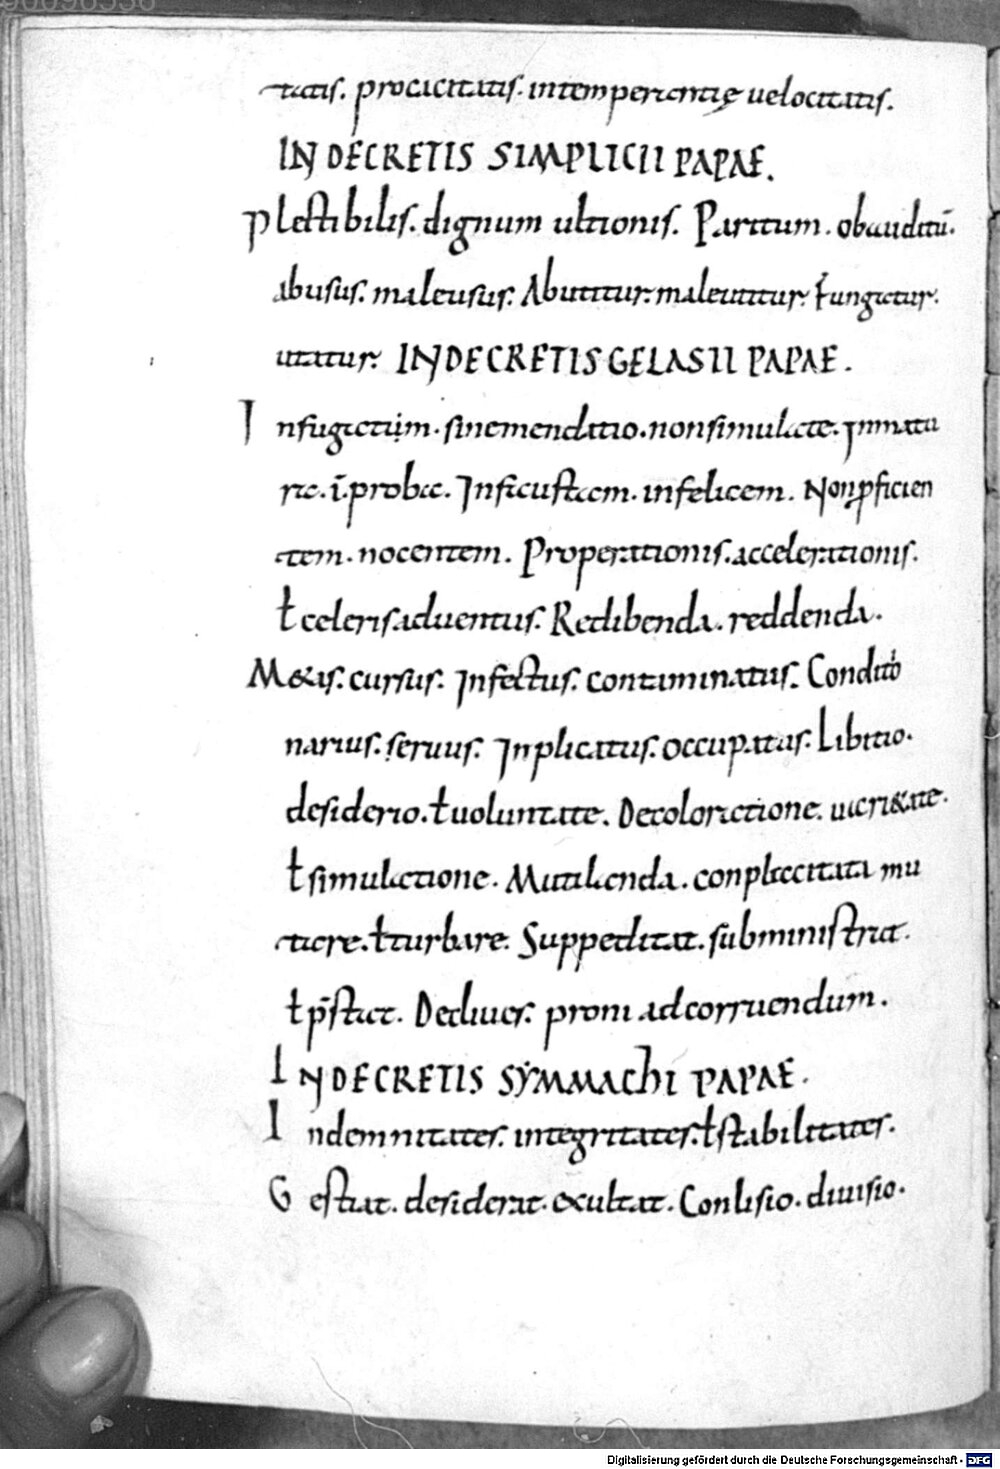 tatis. procacitatis. intemperantię velocitatis.
IN DECRETIS SIMPLICII PAPAE.
Plectibilis. dignum ultionis. Paritum. obauditū.
abusus. maleusus. Abutitur. maleutitur. ł fungatur.
utatur. IN DECRETIS GELASII PAPAE.
Infugatum. sinemendatio. nonsimulate. Inmatu
ra. ī. proba. Inficustam. infelicem. Non ꝓficien
tem. nocentem. Properationis. accelerationis.
ł celerisaduentus. Redibenda. reddenda.
M&as. cursus. Infectus. contaminatus. Condito
narius. seruus. Inplicatus. occupatus. Libitio.
desiderio. ł uoluntate. Decoloratione.
ł simulatione. Mutilanda. conplaccitata mu
tare. ł turbare. Suppeditat. subministrat.
ł p̄stat. Decliues. proni adcorruendum.
IN DECRETIS SYMMACHI PAPAE.
Indemnitates. integritates. ł stabilitates.
Gestiat. desiderat. exultat. Conlisio. diuisio.
Digitalisierung gefördert durch die Deutsche Forschungsgemeinschaft - DFG